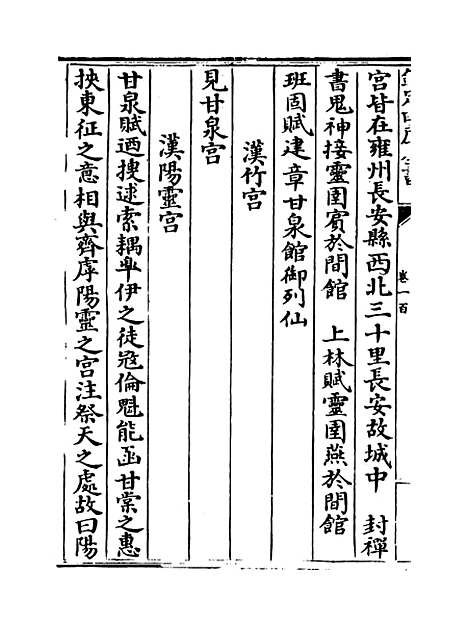 欽定四庫全書
卷一百
宮皆在雍州長安縣西北三十里長安故城中　封禪
書鬼神接靈圉賓於閒館　上林賦靈圉燕於閒館
班固賦建章甘泉館御列仙
漢竹宮
見甘泉宮
漢陽靈宮
甘泉賦迺搜逑索耦臯伊之徒冠倫魁能函甘棠之惠
挾東征之意相與齊虖陽靈之宮注祭天之處故曰陽